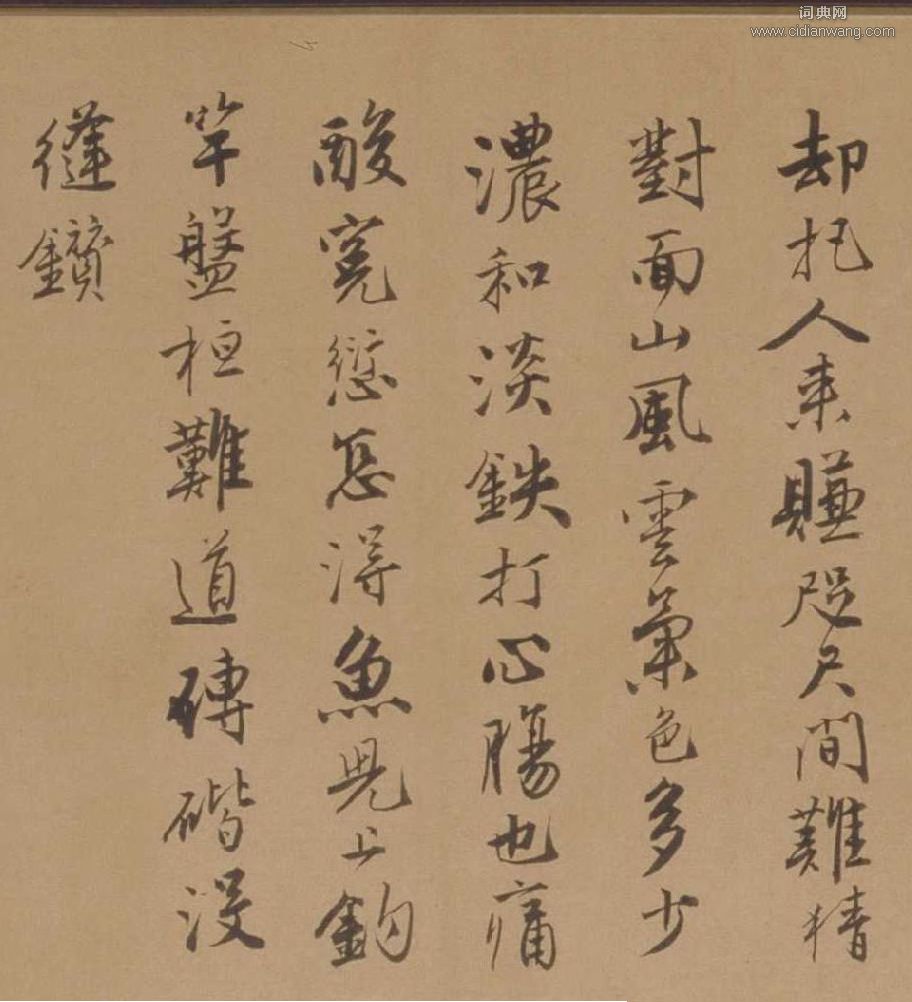 词典网
www.cidianwang.com
却把人来賺咫尺間難猜
對面山風雲氣色多少
濃和淡鉄打心腸也痛
酸寃愆怎得魚兒上鈎
竿盤桓難道磚沒
縫鑽